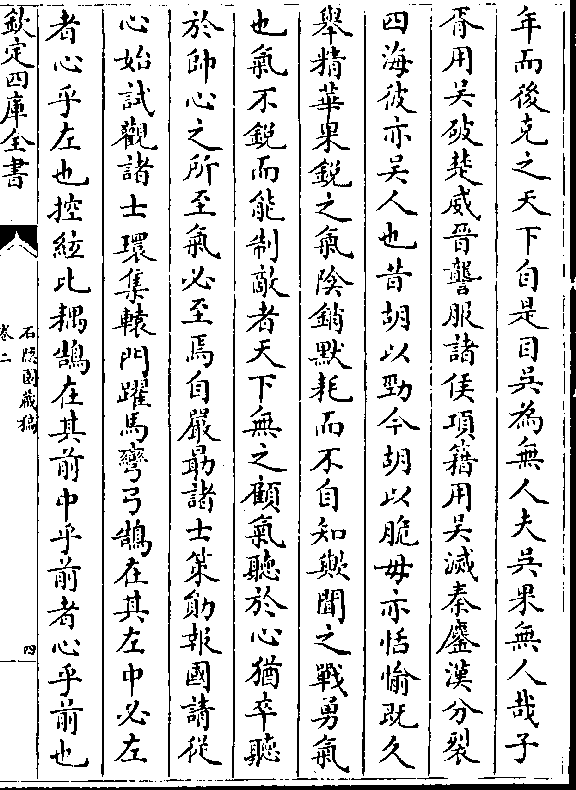 年而後克之天下自是目吳為無人夫吳果無人哉子
胥用吳破楚威晉讋服諸侯項籍用吳滅秦鏖漢分裂
四海彼亦吳人也昔胡以勁今胡以脆毋亦恬愉既久
舉精華果銳之氣陰銷默耗而不自知歟聞之戰勇氣
也氣不銳而能制敵者天下無之顧氣聽於心猶卒聽
於帥心之所至氣必至焉自嚴勗諸士策勛報國請從
心始試觀諸士環集轅門躍馬彎弓鵠在其左中必左
者心乎左也控絃比耦鵠在其前中乎前者心乎前也
欽定四庫全書
石隱園藏稿
卷二
四